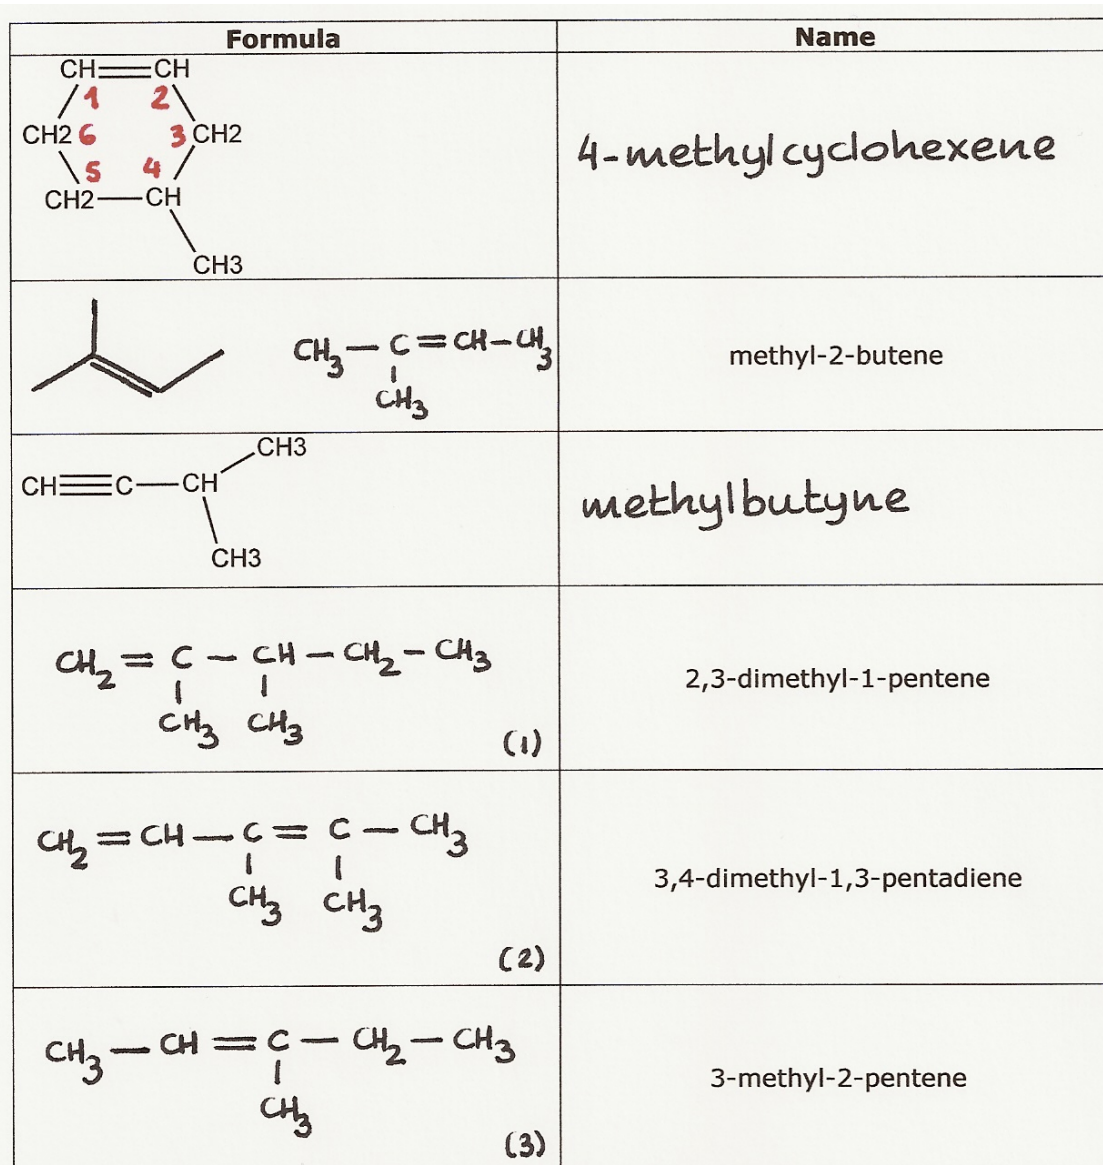 Formula Name
CH=CH
1 2
CH2 6 3 CH2
5 4
CH2—CH
CH3
4-methylcyclohexene
CH₃—C=CH—CH₃
CH₃
methyl-2-butene
CH3
CH≡C—CH
CH3
methylbutyne
CH₂=C—CH—CH₂—CH₃
CH₃ CH₃
(1)
2,3-dimethyl-1-pentene
CH₂=CH—C=C—CH₃
CH₃ CH₃
(2)
3,4-dimethyl-1,3-pentadiene
CH₃—CH=C—CH₂—CH₃
CH₃
(3)
3-methyl-2-pentene